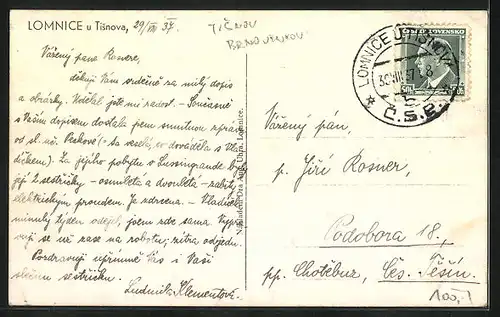 LOMNICE u Tišnova, 29/VIII 37.
TIČNOV
BRNO VENKOV
Vážený pane Rosnere,
děkuji Vám srdečně za milý dopis
a obrázky. Udělal jste mi radost. – Současně
s Vašim dopisem dostala jsem smutnou zprávu
od sl. uč. Peškové (– ta veselá, co dováděla s Vla-
dičkem). Za jejího pobytu v Lussingrande byly
její 2 sestřičky – osmiletá a dvouletá – zabity
elektrickým proudem. Je zdrcena. – Vladíček
minulý týden odejel, jsem zde sama. Vypra-
vuji se už zase na robotu; zítra odjedu.
Pozdravuji upřímně Vás i Vaši
slečnu sestřičku.
Ludmila Klementová.
Nákladem Dra Aug. Uhra, Lomnice.
ČESKOSLOVENSKO
50h
LOMNICE U TIŠNOVA
30.VIII.37
Č.S.P.
Vážený pán,
p. Jiří Rosner,
Podobora 18,
pp. Chotěbuz, Čes. Těšín.
100,-